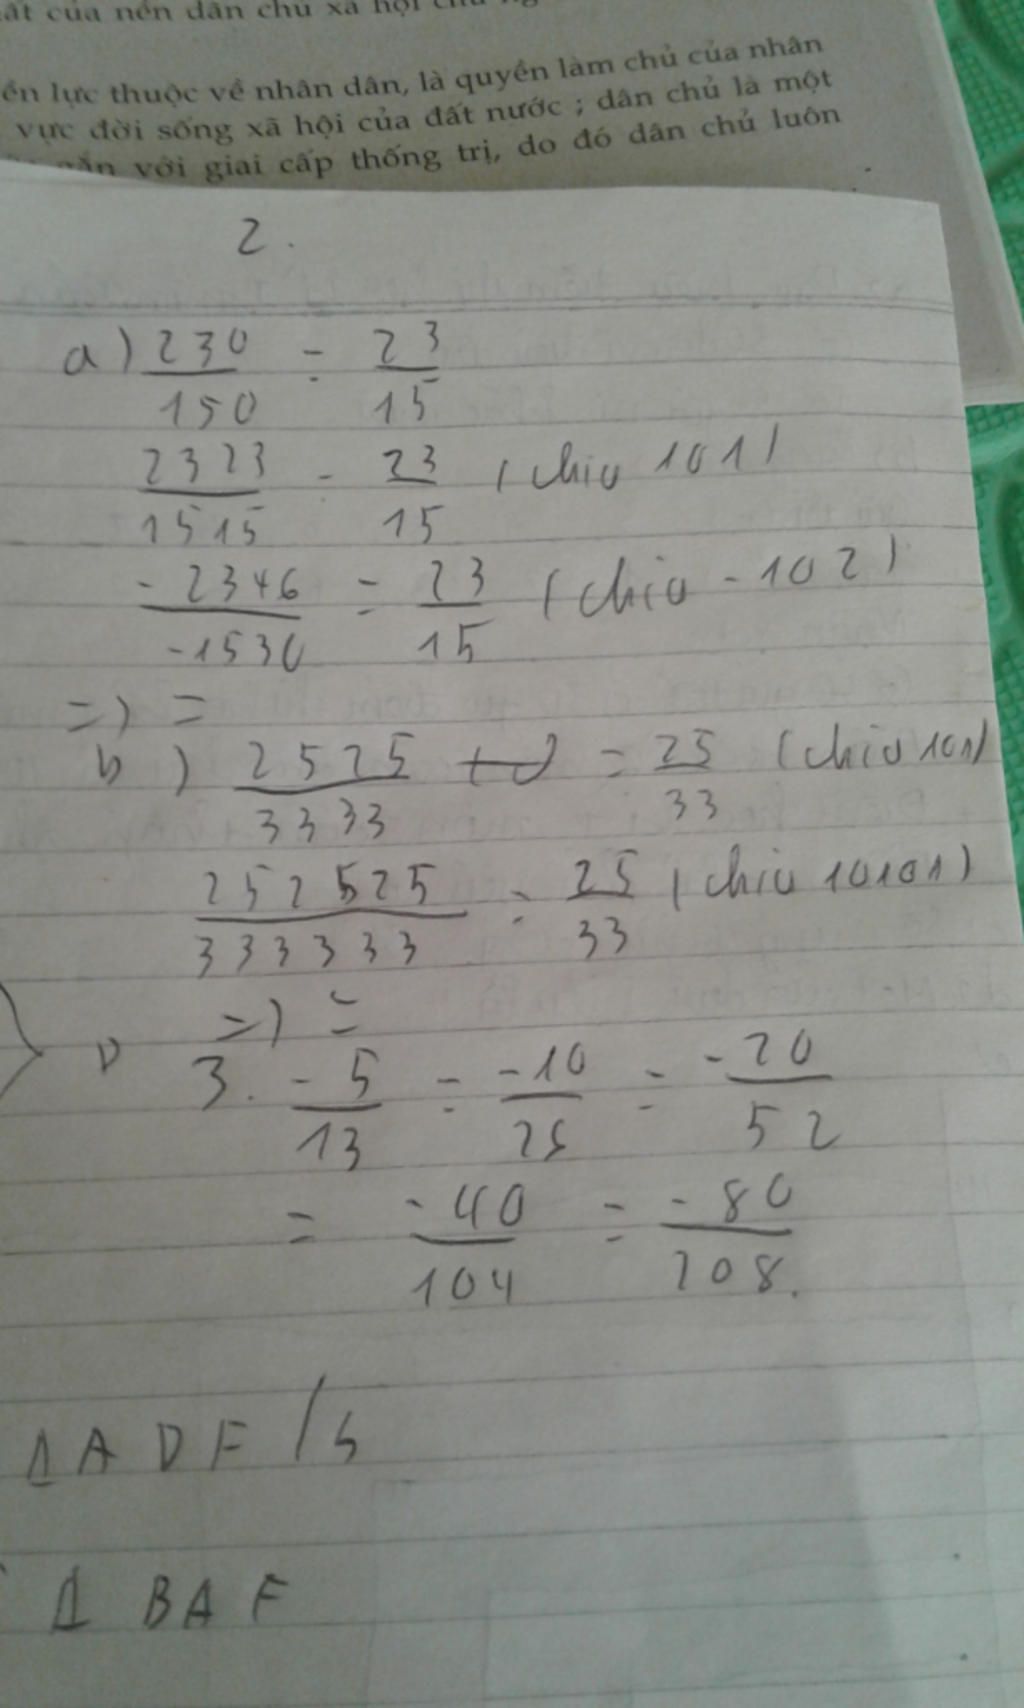 ất của nền dân chủ xã hội
ền lực thuộc về nhân dân, là quyền làm chủ của nhân
vực đời sống xã hội của đất nước ; dân chủ là một
gắn với giai cấp thống trị, do đó dân chủ luôn
2.
a) 230/150 = 23/15
2323/1515 = 23/15 (chia 101)
-2346/-1530 = 23/15 (chia -102)
=) =
b) 2525/3333 = 25/33 (chia 101)
252525/333333 = 25/33 (chia 10101)
=) =
3. -5/13 = -10/26 = -20/52
= -40/104 = -80/208.
Δ ADF / s
Δ BAF